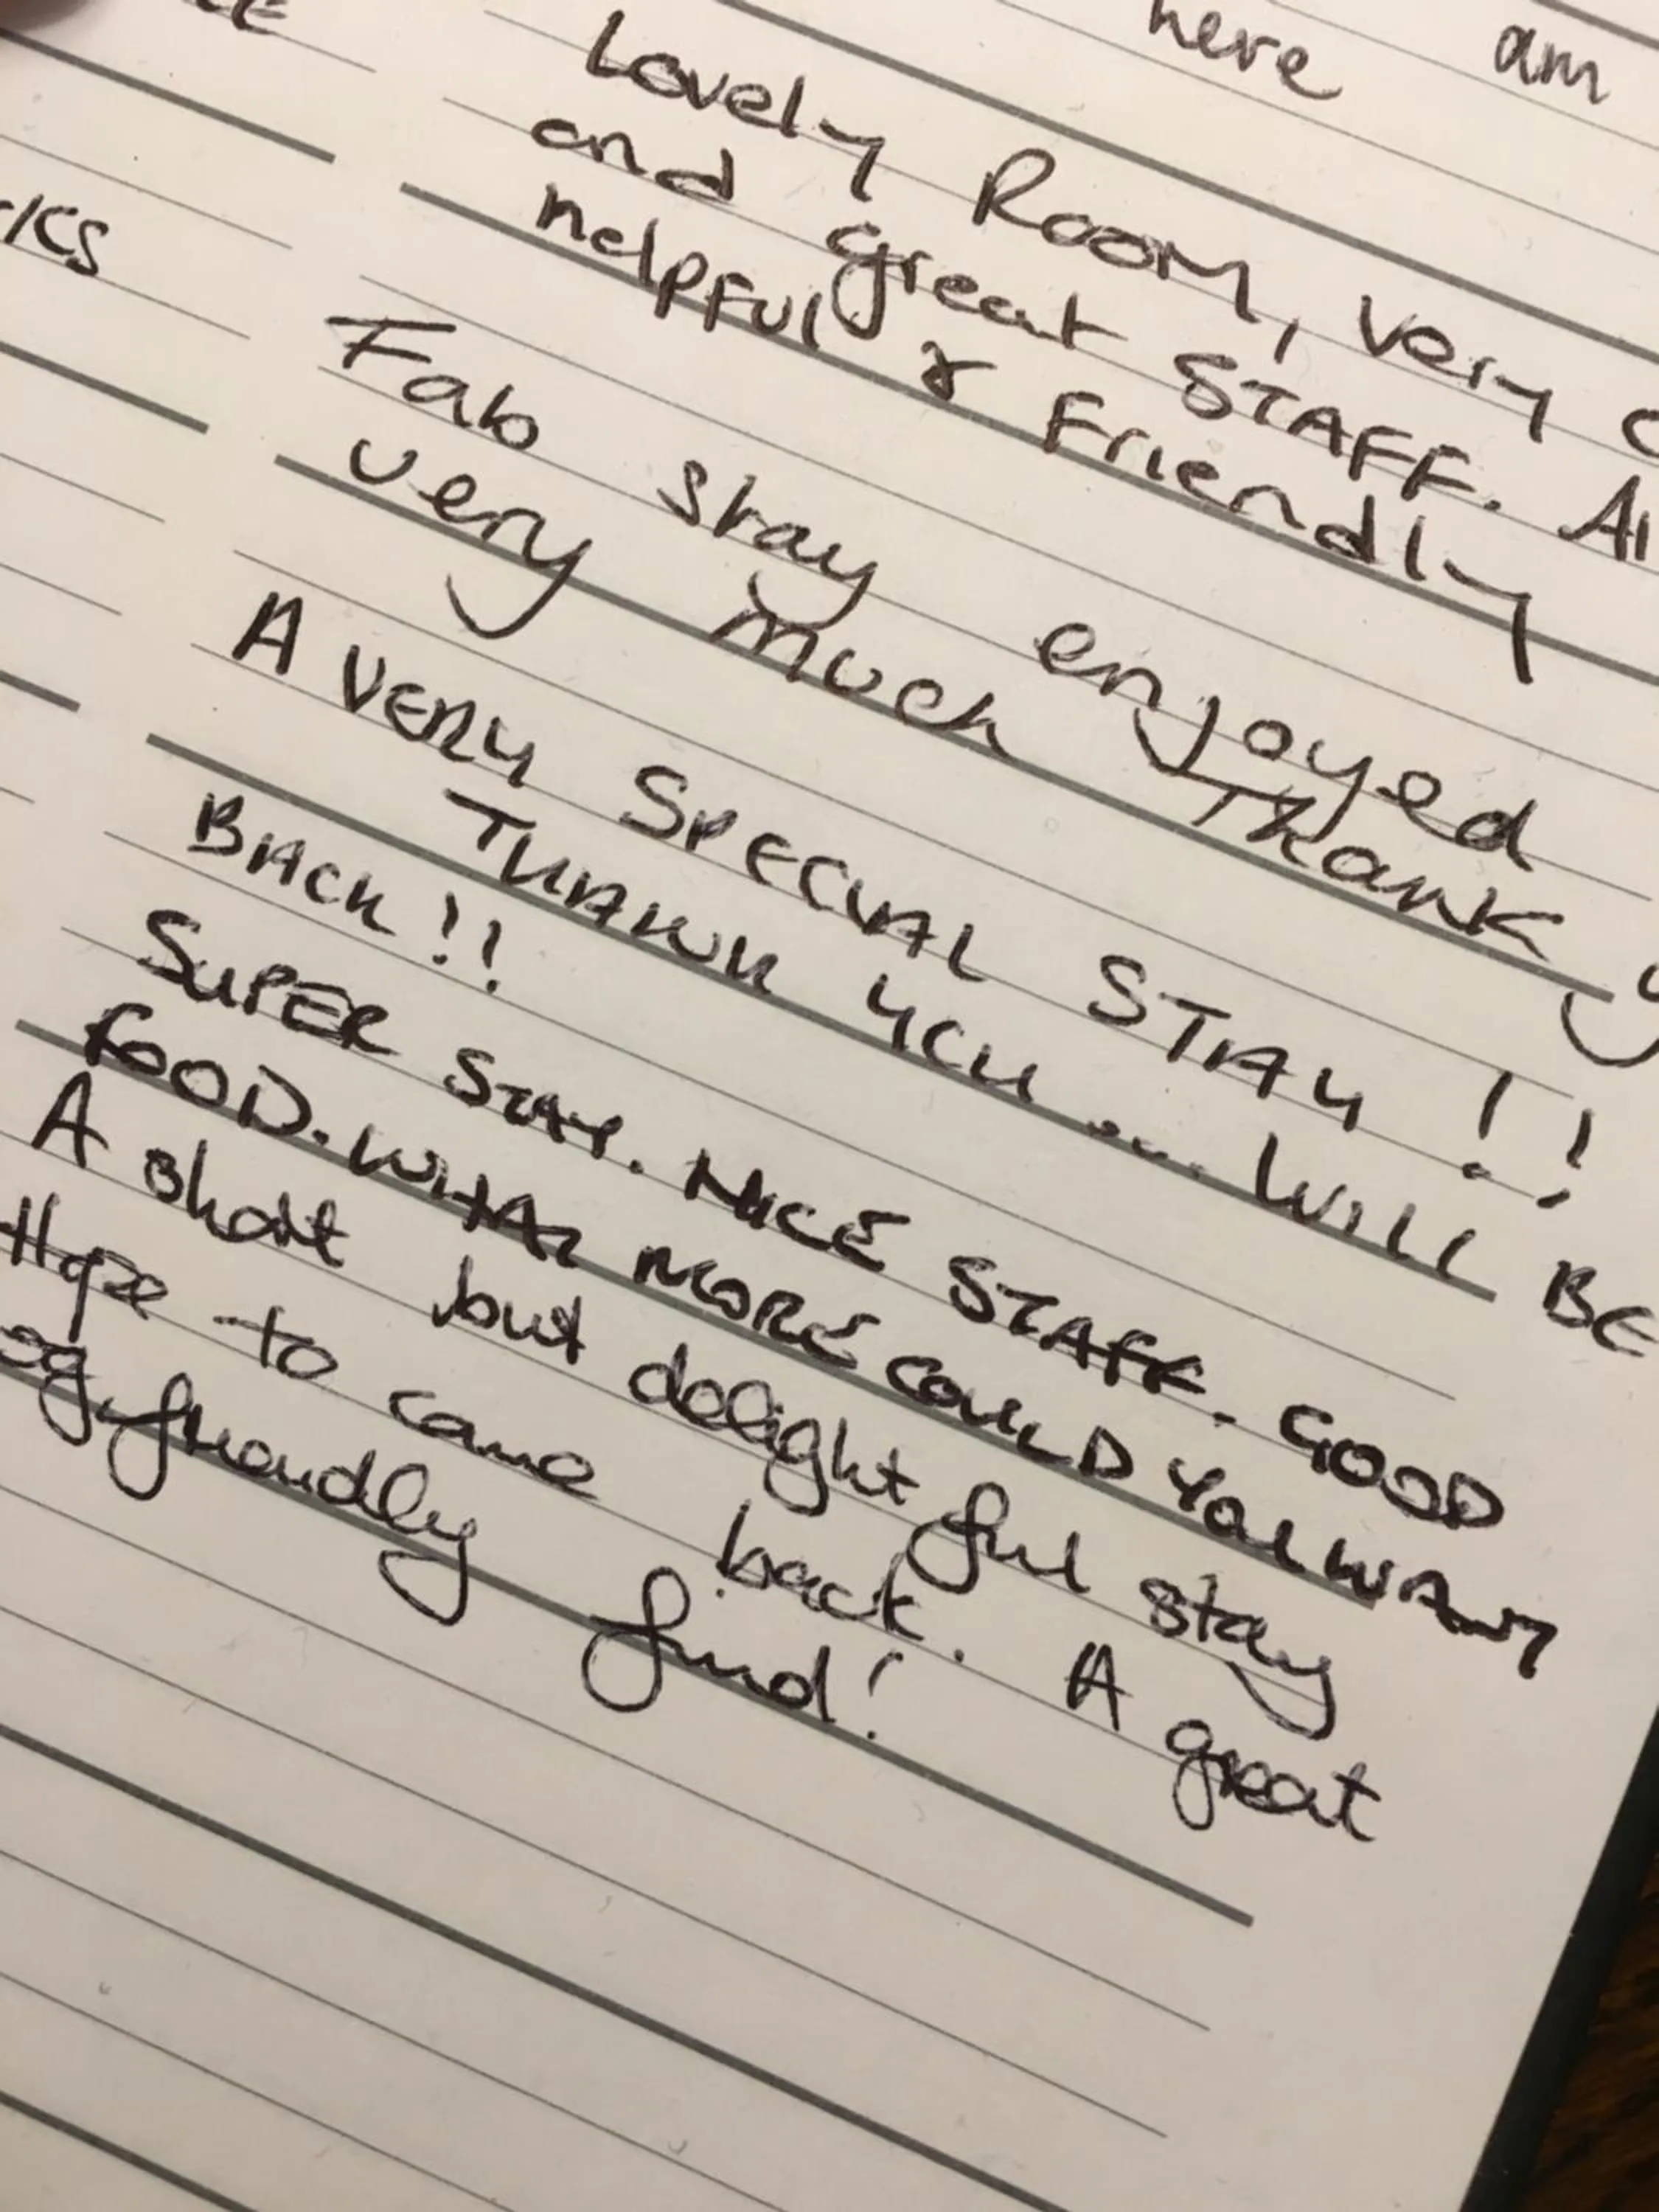 here am
Lovely Room, very
and great STAFF.
helpful & Friendly
Fab stay enjoyed
very much Thank
A VERY SPECIAL STAY !!
THANK YOU ... WILL BE
BACK !!
SUPER STAY. NICE STAFF. GOOD
FOOD. WHAT MORE COULD YOU WANT
A short but delightful stay
Hope to come back. A great
friendly find!